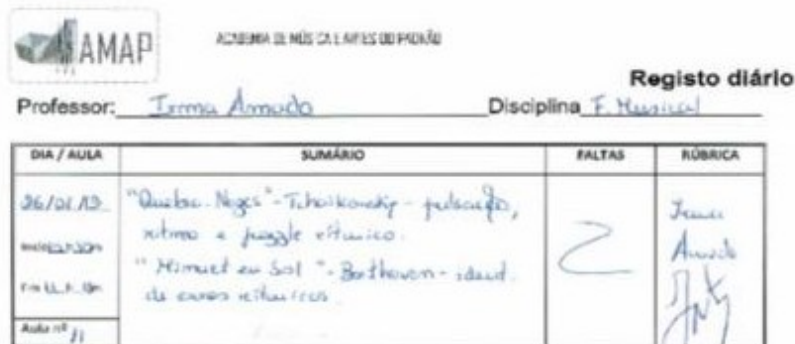 AMAP
ACADEMIA DE MÚSICA E ARTES DO PADRÃO
Registo diário
Professor: Irma Amado Disciplina F. Musical
DIA / AULA SUMÁRIO FALTAS RÚBRICA
"Quebra-Nozes" - Tchaikovsky - pulsação,
ritmo e puzzle rítmico.
"Minuet em Sol" - Beethoven - ident.
de erros rítmicos.
Irma
Amado
Aula nº 11